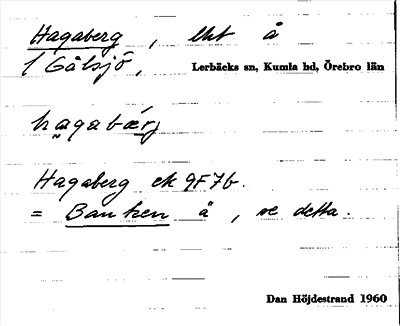 Hagaberg, lht å
f Gålsjö, Lerbäcks sn, Kumla hd, Örebro län
hagabærj
Hagaberg ek 9F7b.
= Banken å, se detta.
Dan Höjdestrand 1960